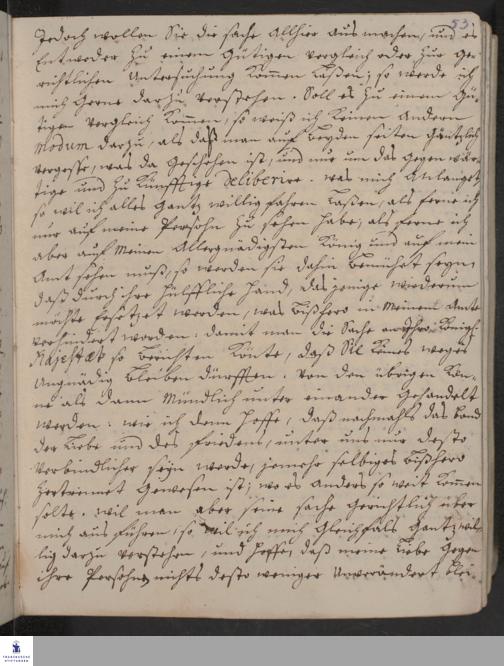 53.
Jedoch wollen Sie die sache allhier ausmachen, und es
Entweder zu einem gütigen vergleich oder zur ge-
richtlichen Untersuchung kommen laßen; so werde ich
mich gerne darzu verstehen. Soll es zu einem gü-
tigen vergleich kommen, so weiß ich keinen andern
Modum darzu, als daß man auf beyden seiten gäntzlich
vergeße, was da geschehen ist, und nur um das gegenwär-
tige und zukünfftige deliberire. was mich anlanget,
so wil ich alles gantz willig fahren laßen, als ferne ich
nur auf meine Persohn zu sehen habe; als ferne ich
aber auf meinen Allergnädigsten König und auf mein
Amt sehen muß, so werden sie dahin bemühet seyn,
daß durch ihre hülffliche Hand, das jenige wiederum
möchte ersetzet werden, was bißhero in meinem Amte
verhindert worden: damit man die Sache an Ihro Königl.
Majestät so berichten könte, daß Sie keines weges
ungnädig bleiben dürfften. von den übrigen kön-
te als dann mündlich unter einander gehandelt
werden: wie ich denn hoffe, daß nachmahls das band
der Liebe und des friedens, unter uns nur desto
verbindlicher seyn werde, jemehr selbiges bißhero
zertrennet gewesen ist; wo es anders so weit kommen
solte. wil man aber seine sache gerichtlich über
mich ausführen, so wil ich mich gleichfals gantz wil-
lig darzu verstehen, und hoffe, daß meine Liebe gegen
ihre Persohn nichts desto weniger unverändert blei-
FRANCKESCHE
STIFTUNGEN